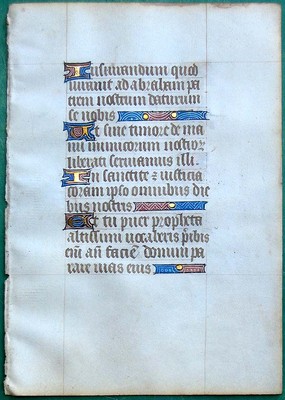 Iusiurandum quod
iuravit ad abraham pa
trem nostrum daturum
se nobis
Ut sine timore de ma
nu inimicorum nostror
liberati serviamus illi.
In sanctitate z iusticia
coram ipso omnibus die
bus nostris
Et tu puer propheta
altissimi vocaberis p̄ibis
eni᷒ añ faciē domini pa
rare vias eius